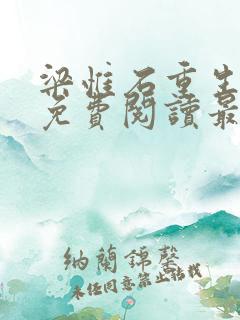 梁惟石重生
免費閱讀最
納蘭錦馨
未经同意禁止转载